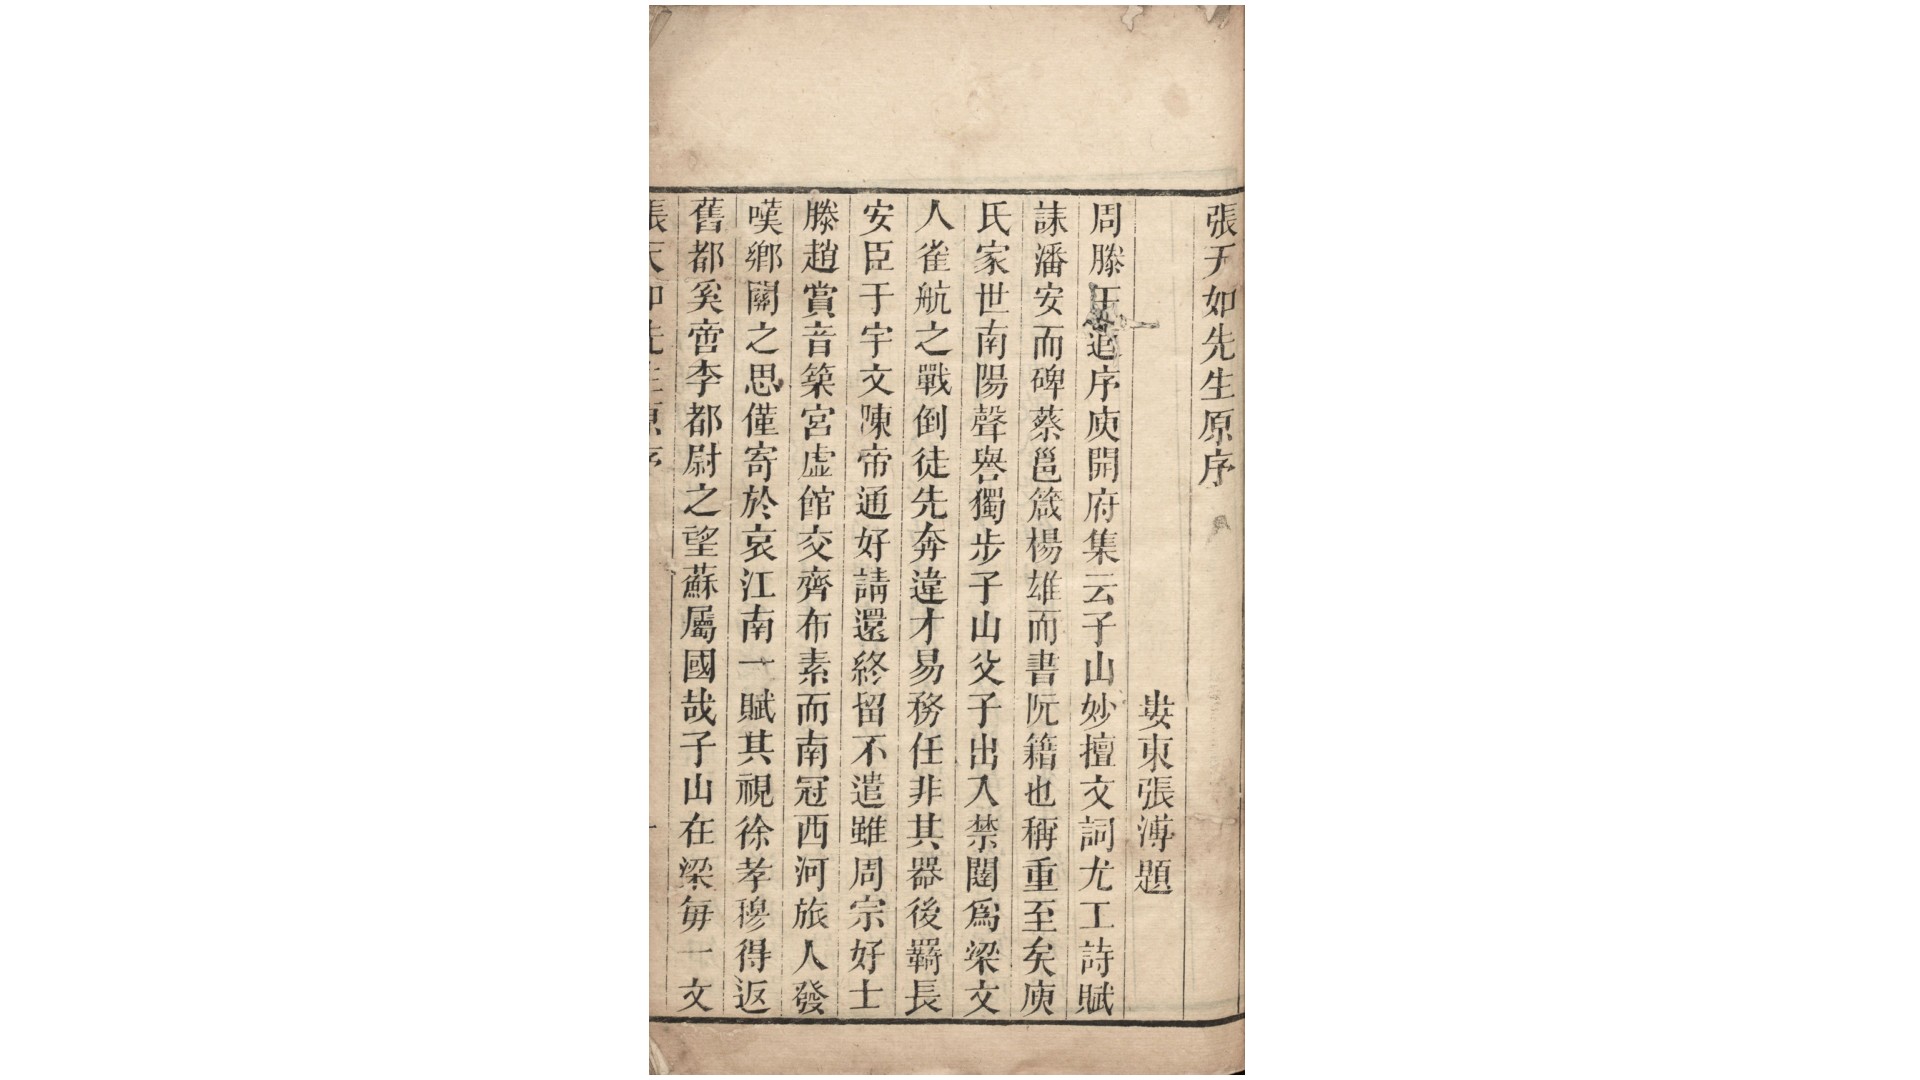 張天如先生原序
婁東張溥題
周滕王逌序庾開府集云子山妙擅文詞尤工詩賦
誄潘安而碑蔡邕箴楊雄而書阮籍也稱重至矣庾
氏家世南陽聲譽獨步子山父子出入禁闥爲梁文
人雀航之戰倒徒先奔違才易務任非其器後羈長
安臣于宇文陳帝通好請還終留不遣雖周宗好士
滕趙賞音築宮虛館交齊布素而南冠西河旅人發
嘆鄉關之思僅寄於哀江南一賦其視徐孝穆得返
舊都奚啻李都尉之望蘇屬國哉子山在梁每一文
張天如先生原序